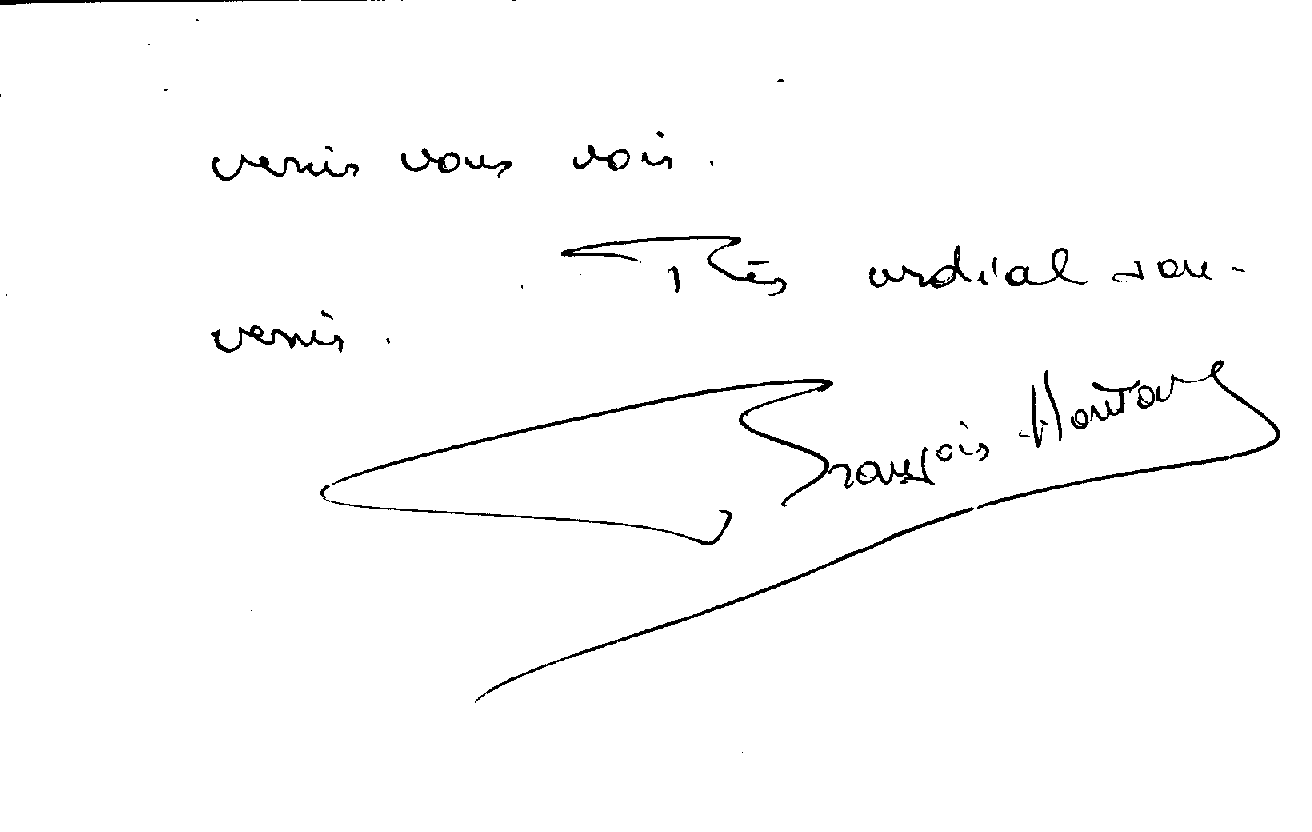 venir vous voir.
Très cordial sou-
venir.
François Houtart